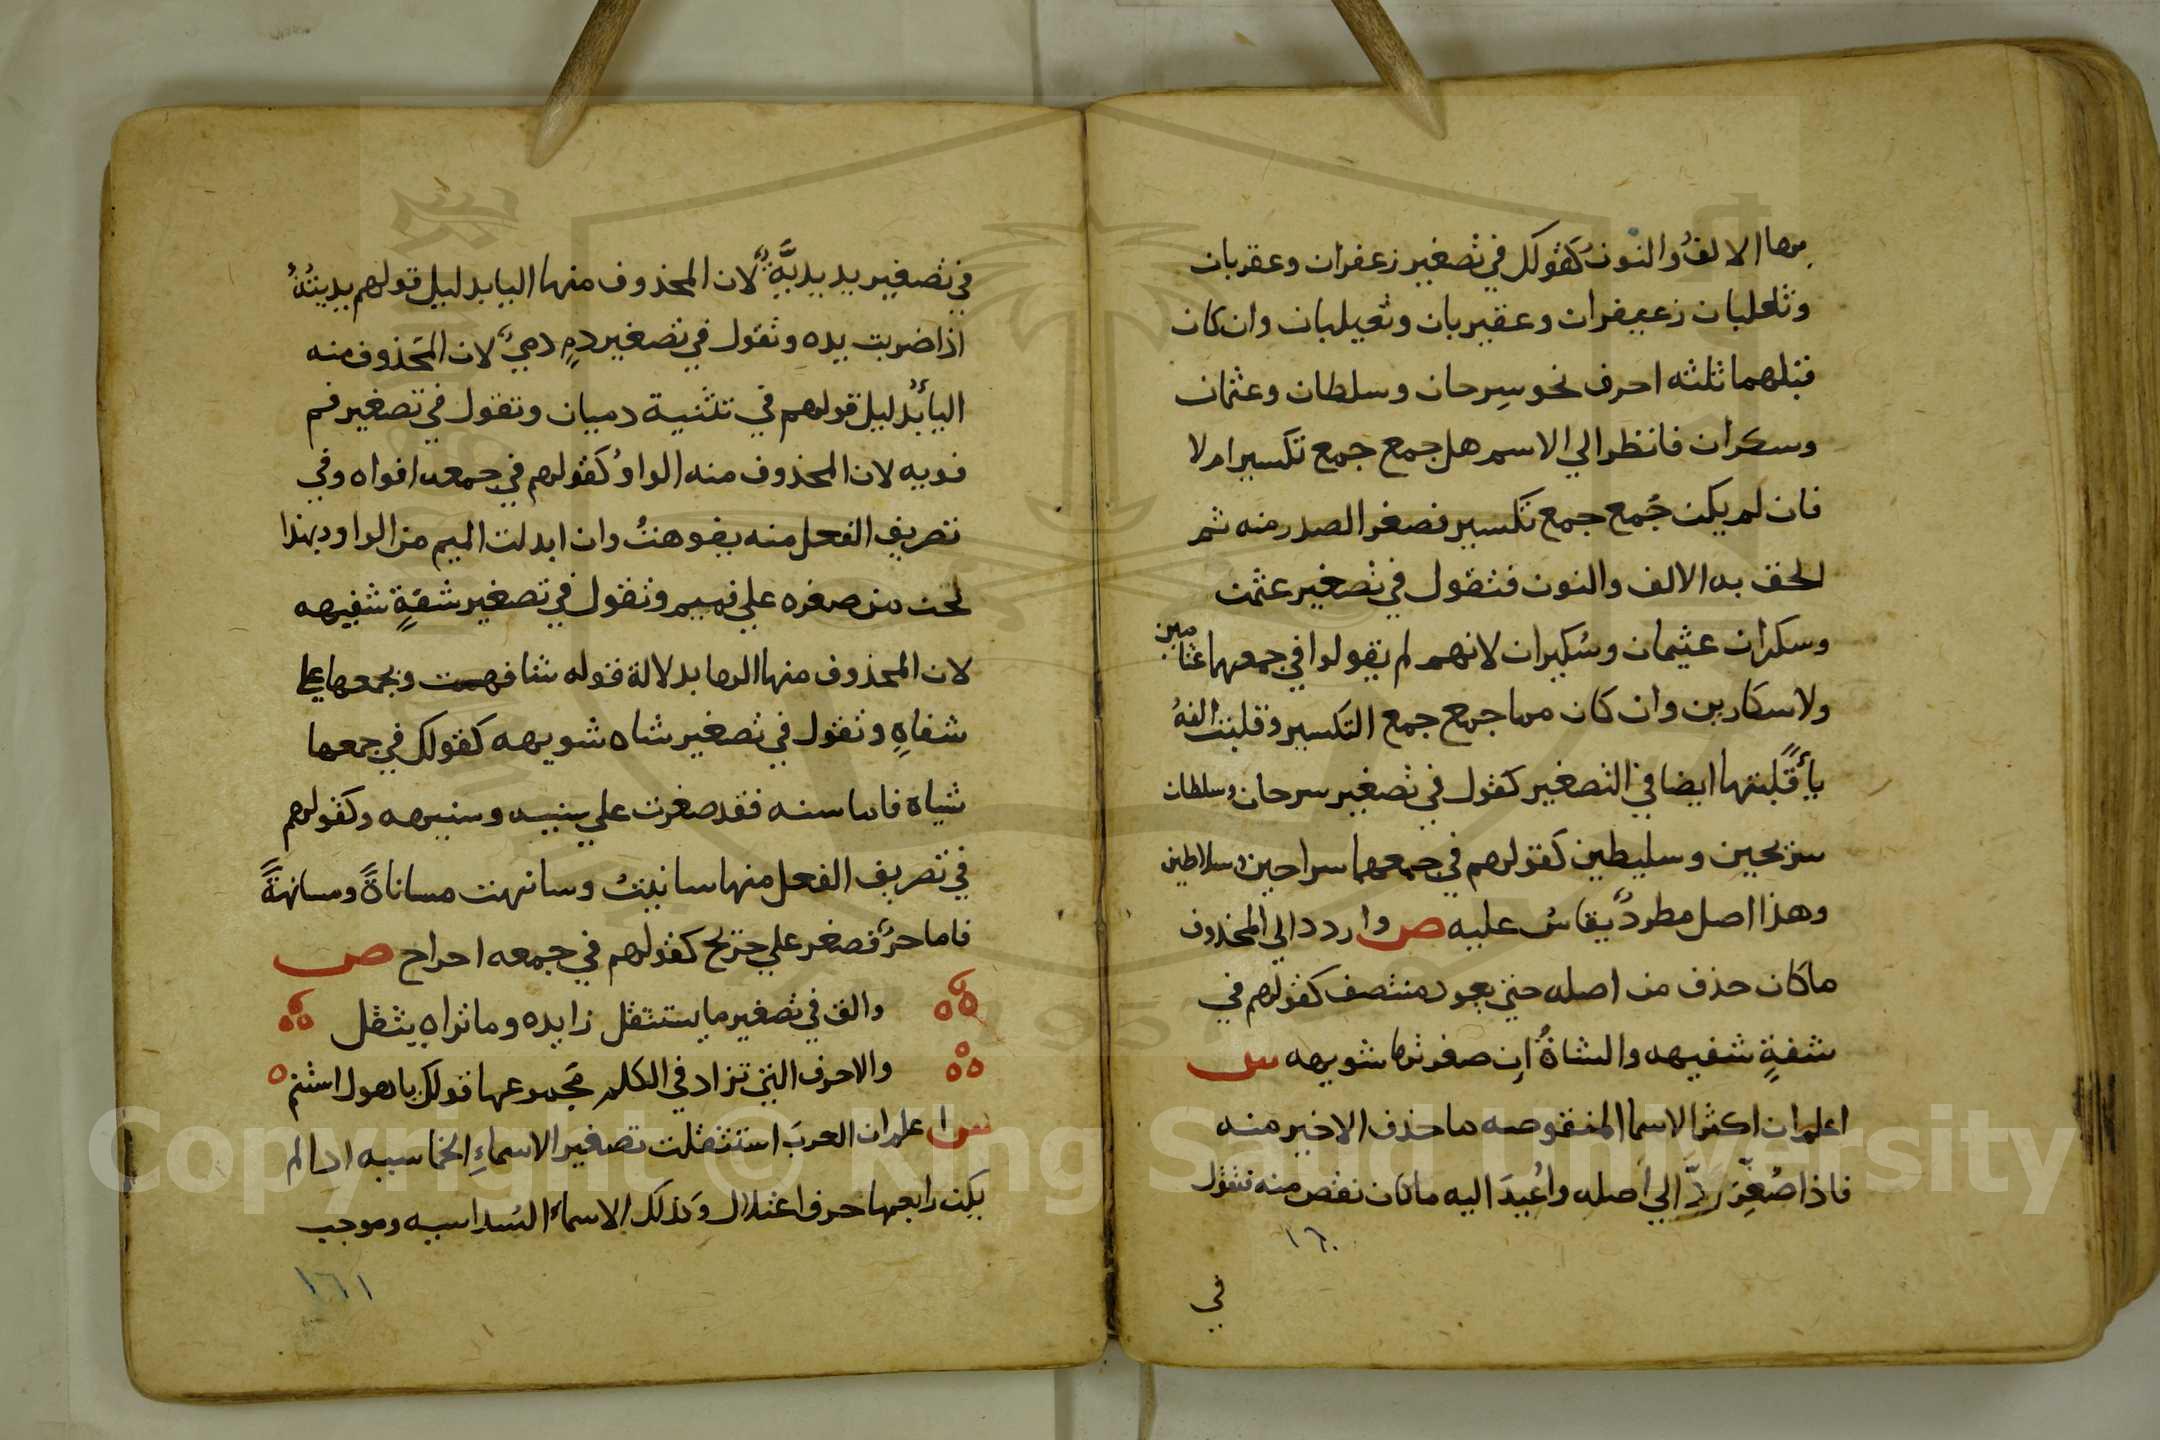 بهما الالفُ والنونُ كقولك في تصغير زعفران وعقربان
وثعلبان زعيفران وعقيربان وثعيلبان وان كان
قبلهما ثلثه احرف نحو سِرحان وسلطان وعثمان
وسكران فانظر الي الاسم هل جمع جمع تكسير ام لا
فان لم يكن جُمع جمع تكسير فصغر الصدر منه ثم
الحق به الالف والنون فتقول في تصغير عثمن
وسكران عثيمان وسُكيران لانهم لم يقولوا في جمعهما عثامين
ولا سكارين وان كان مما جمع جمع التكسير وقلبت الفهُ
يأً قلبتها ايضا في التصغير كقول في تصغير سرحان وسلطان
سريحين وسليطين كقولهم في جمعهما سراحين وسلاطين
وهذا اصل مطردٌ يقاسُ عليه ص واردد الي المحذوف
ماكان حذف من اصله حتي يعود منتصف كقولهم في
شفةٍ شفيهه والشاةُ اِن صغرتها شويهه س
اعلم ان اكثر الاسما المنقوصه ما حذف الاخير منه
فاذا صُغِّر رُدَّ الي اصله واُعيدَ اليه ماكان نقص منه فتقول
١٦٠
في
في تصغير يد يديَّةٌ لان المحذوف منها اليا بدليل قولهم يديتُهُ
اذا ضربت يده وتقول في تصغير دمٍ دميٌ لان المحذوف منه
اليأ بدليل قولهم في تثنية دميان وتقول في تصغير فم
فويه لان المحذوف منه الواوُ كقولهم في جمعه افواه وفي
تصريف الفعل منه يفوهتُ وان ابدلت الميم من الواو وبهذا
لحن من صغره علي فميم وتقول في تصغير شفةٍ شفيهه
لان المحذوف منها الها بدلالة قوله شافهت وبجمعها علي
شفاهِ وتقول في تصغير شاه شويهه كقولك في جمعها
شياه فاما سنه فقد صغرت علي سنيه وسنيهه وكقولهم
في تصريف الفعل منها سانيتُ وسانهت مساناةً ومسانهةً
فاما حرٌ فصغر علي حريح كقولهم في جمعه احراح ص
والق في تصغير ما يستثقل زايده وما تراه يثقل
والاحرف التي تزاد في الكلم مجموعها قولك يا هول استنم
س اعلم ان العربَ استثقلت تصغير الاسماءِ الخماسيه اذا لم
يكن رابعها حرف اعتلال وكذلك الاسماء السداسيه وموجب
١٦١
Copyright © King Saud University
1957